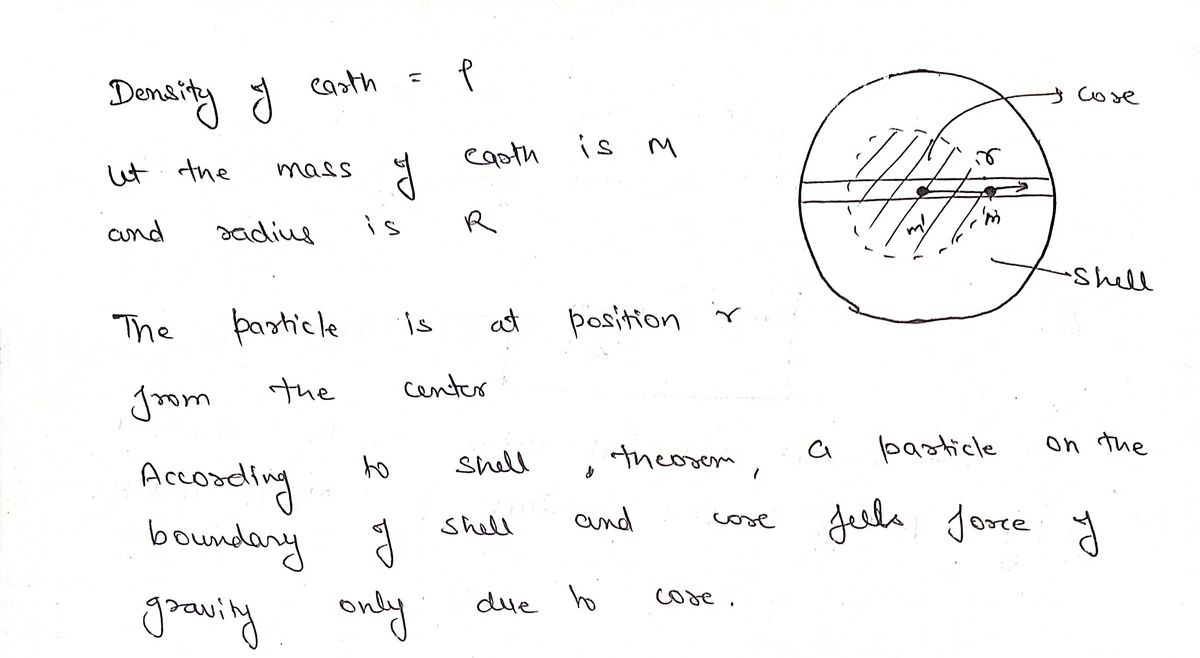 Density of earth = ρ
let the mass of earth is M
and radius is R
The particle is at position r
from the center
According to shell , theorem , a particle on the
boundary of shell and core feels force of
gravity only due to core .
core
r
m'
m
shell